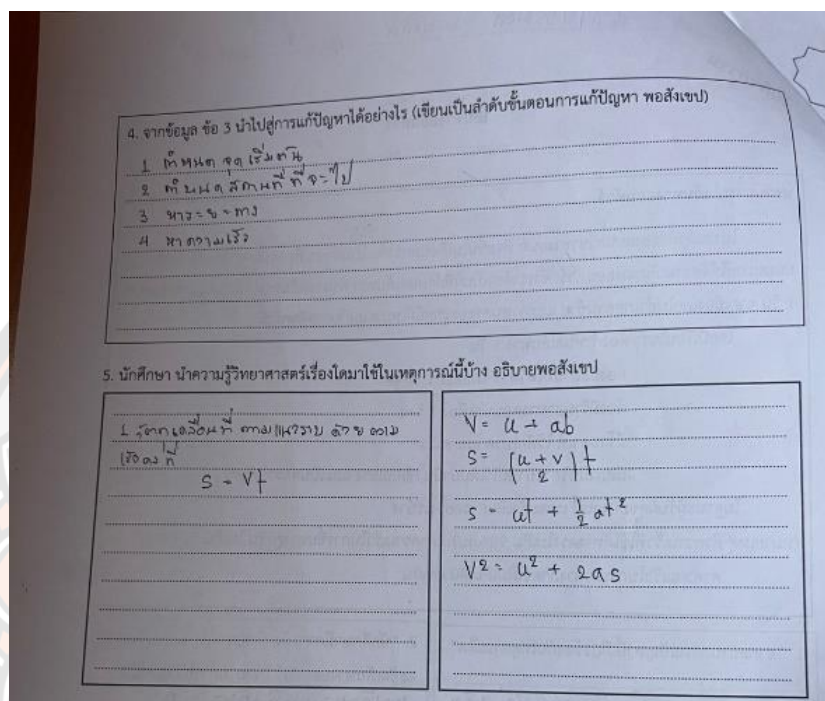 4. จากข้อมูล ข้อ 3 นำไปสู่การแก้ปัญหาได้อย่างไร (เขียนเป็นลำดับขั้นตอนการแก้ปัญหา พอสังเขป)
1 กำหนด จุดเริ่มต้น
2 กำหนดสถานที่ ที่จะไป
3 หาระยะทาง
4 หาความเร็ว
5. นักศึกษา นำความรู้วิทยาศาสตร์เรื่องใดมาใช้ในเหตุการณ์นี้บ้าง อธิบายพอสังเขป
1 วัตถุเคลื่อนที่ ตามแนวราบ ด้วย ความ
เร็วคงที่
S = Vt
V = u + ab
S = (u + v / 2) t
S = ut + 1/2 at²
V² = u² + 2as